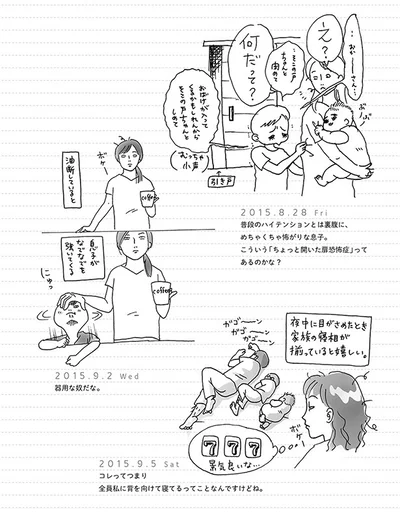 え？
…おかーさん…
…そこの戸
ちゃんと
閉めて…
何だって？
おばけが入って
くるかもしれんがら
そこの戸ちゃんと
しめて
（むっちゃ
小声）
引き戸
2015.8.28 Fri
普段のハイテンションとは裏腹に、
めちゃくちゃ怖がりな息子。
こういう「ちょっと開いた扉恐怖症」って
あるのかな？
油断していると
ボケー
coffee
息子が
なでなでを
強いてくる
coffee
にゅっ
2015.9.2 Wed
器用な奴だな。
夜中に目がさめたとき
家族の寝相が
揃っていると嬉しい。
ガゴーン
ガゴーン
ガゴーン
ボケー
7 7 7
景気良いな…
2015.9.5 Sat
コレってつまり
全員私に背を向けて寝てるってことなんですけどね。